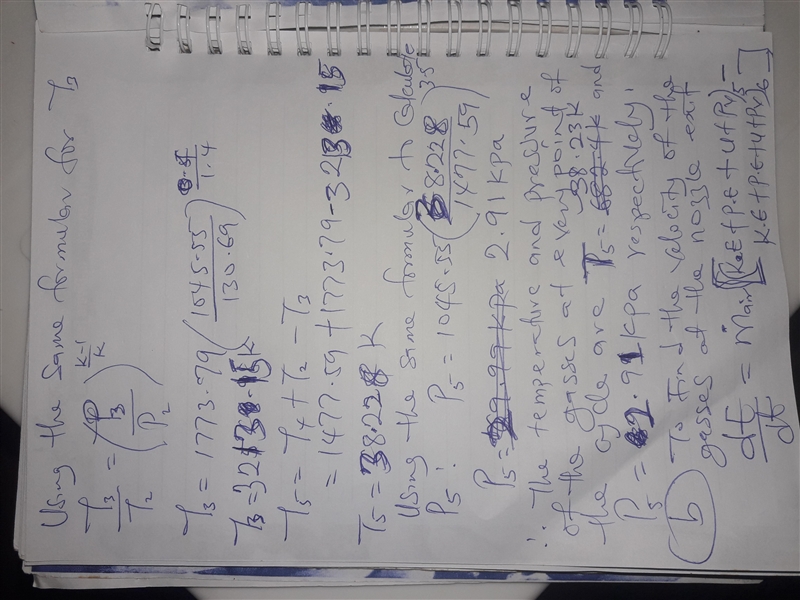 Using the same formular for T3
T3/T2 = (P3/P2)^(k-1/k)
T3 = 1773.79 (1045.55/130.69)^(/1.4)
T3 = 3213.15K
T5 = T4 + T2 - T3
= 1477.59 + 1773.79 - 3213.15
T5 = 38.228 K
Using the same formular to calculate
P5: P5 = 1045.55 (38.228/1477.59)^3.5
P5 = 2.91 kpa
∴ The temperature and pressure
of the gasses at every point of
the cycle are T5 = 38.23K and
P5 = 2.91 kpa respectively.
(b) To find the velocity of the
gasses at the nozzle exit
dE/dt = Mair [(K.E + P.E + U + PV)5 -
K.E + P.E + U + PV)6]